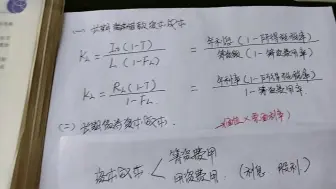 (一) 长期借款资本成本
K_L = I_L(1-T) / L(1-F_L) = 年利息(1-所得税税率) / 筹资额(1-筹资费用率)
K_L = R_L(1-T) / 1-F_L = 年利率(1-所得税税率) / 1-筹资费用率
(二) 长期债券资本成本.
资本成本 < 筹资费用
用资费用. (利息 股利)